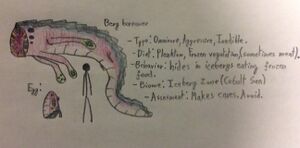 Berg burrower
- Type: Omnivore, Aggressive, Inedible.
- Diet: Plankton, frozen vegetation, (sometimes meat).
- Behavior: hides in icebergs eating frozen
food.
- Biome: Iceberg Zone (Cobalt Sea)
- Assessment: Makes caves. Avoid.
Egg: